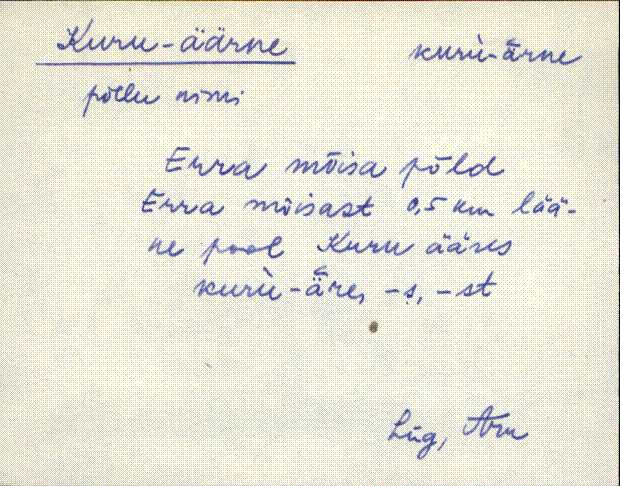 Kuru-äärne kurù̬-ä̆rne
põllu nimi
Erra mõisa põld
Erra mõisast 0,5 km lää-
ne pool Kuru ääres
kurù-ä̆re, -s, -st
Lüg, Aru